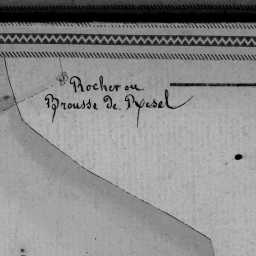 Rocher ou
Brousse de Resel